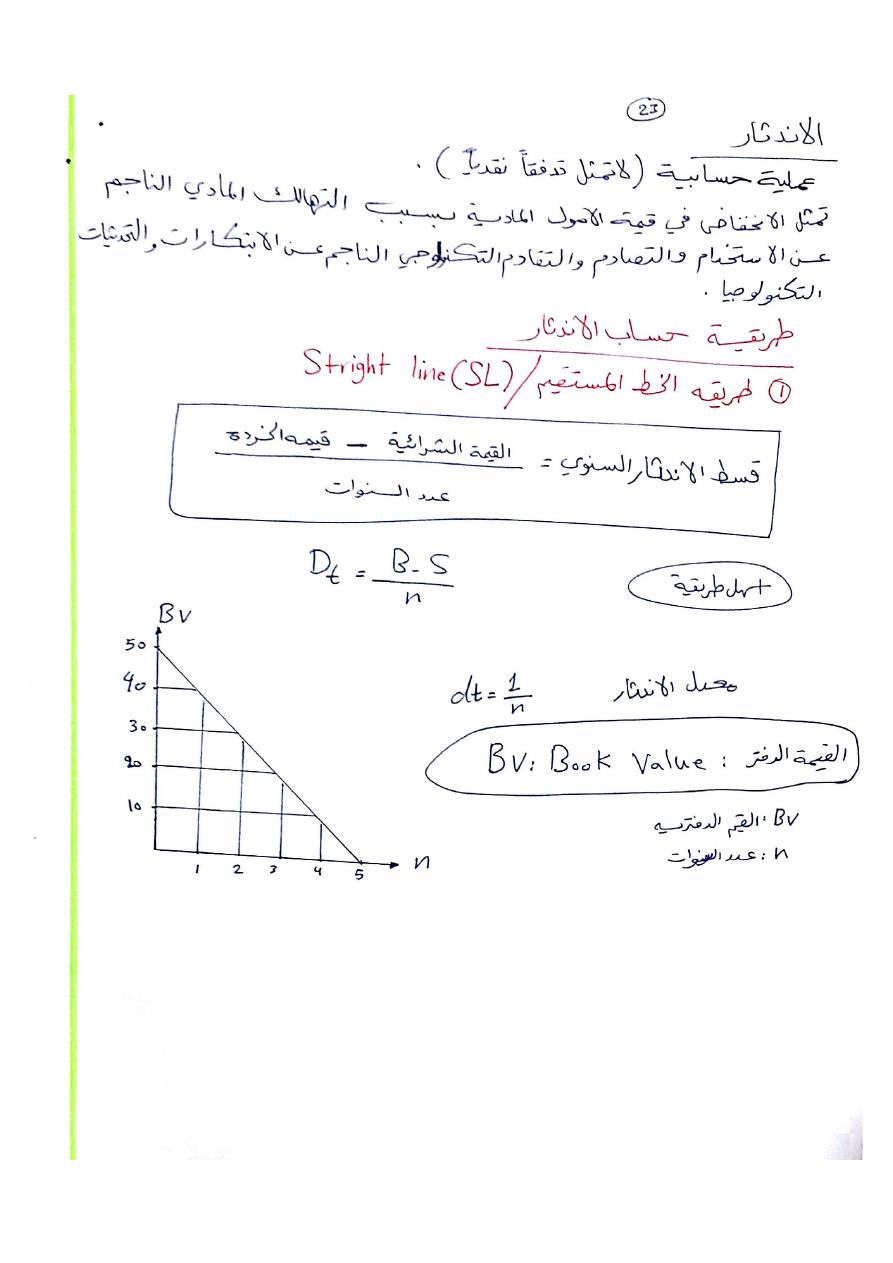 23
الاندثار
عملية حسابية (لاتمثل تدفقاً نقدياً) .
تمثل الانخفاض في قيمة الاصول المادية بسبب التهالك المادي الناجم
عن الاستخدام والتصادم والتقادم التكنلوجي الناجم عن الابتكارات والتحديثات
التكنولوجيا .
طريقة حساب الاندثار
① طريقه الخط المستقيم / Stright line (SL)
قسط الاندثار السنوي = القيمة الشرائية - قيمه الخردة
عدد السنوات
Dt = B - S
n
اسهل طريقة
BV
50
40
30
20
10
1 2 3 4 5 n
معدل الاندثار dt = 1/n
القيمة الدفتر : BV: Book Value
BV : القيم الدفتريه
n : عدد السنوات